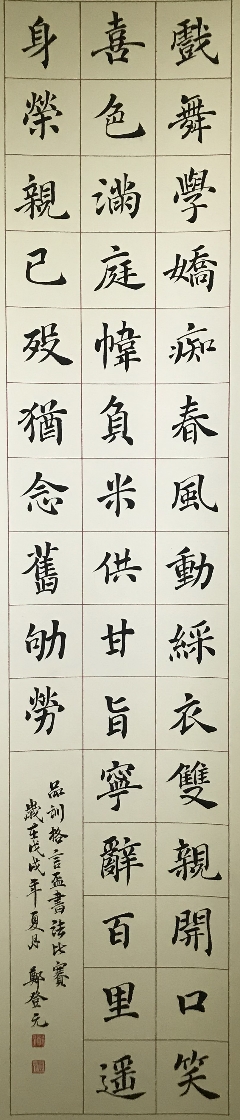 戲舞學嬌痴春風動綵衣雙親開口笑
喜色滿庭幃負米供甘旨寧辭百里遥
身榮親已歿猶念舊劬勞
品訓格言盃書法比賽
歲在戊戌年夏月 鄭登元